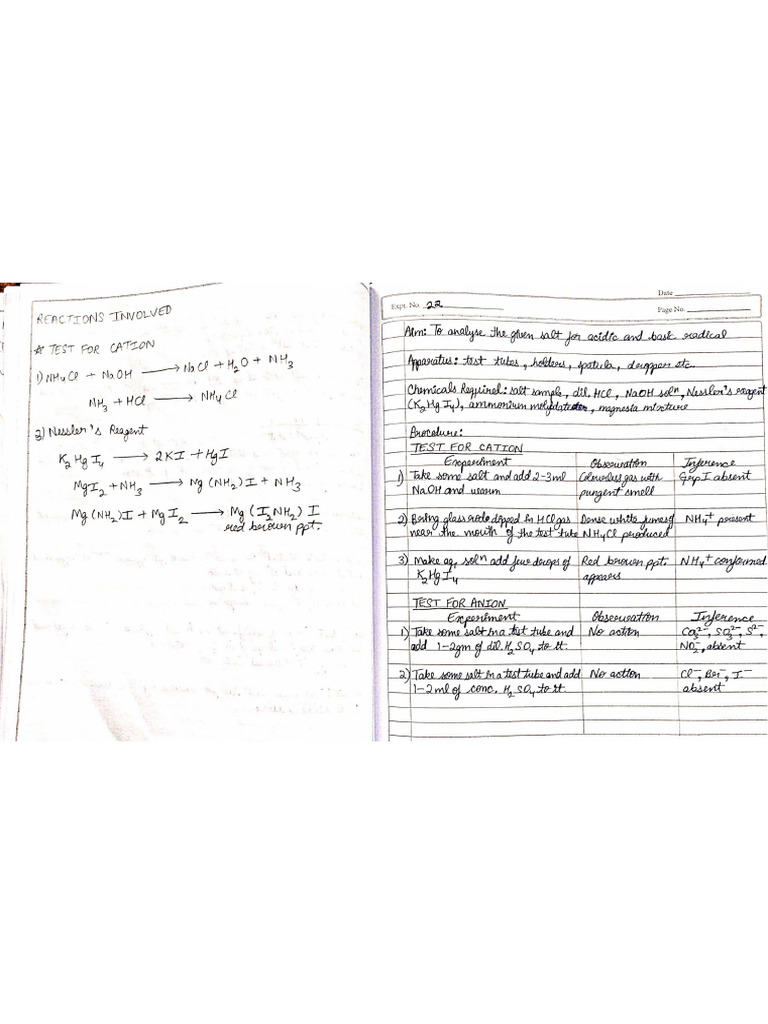 REACTIONS INVOLVED
☆ TEST FOR CATION
1) NH4Cl + NaOH → NaCl + H2O + NH3
NH3 + HCl → NH4Cl
2) Nessler's Reagent
K2HgI4 → 2KI + HgI
MgI2 + NH3 → Mg(NH2)I + NH3
Mg(NH2)I + MgI2 → Mg(I2NH2)I
red brown ppt.
Date
Expt. No. 22
Page No.
Aim: To analyse the given salt for acidic and basic radical
Apparatus: test tubes, holders, spatula, dropper etc.
Chemicals Required: salt sample, dil. HCl, NaOH soln, Nessler's reagent
(K2HgI4), ammonium molydate, magnesta mixture
Procedure:
TEST FOR CATION
Experiment Observation Inference
1) Take some salt and add 2-3ml Colourless gas with Grp I absent
NaOH and warm pungent smell
2) Bring glass rode dipped in HCl gas Dense white fumes of NH4+ present
near the mouth of the test tube NH4Cl produced
3) Make aq. soln add few drops of Red brown ppt. NH4+ conformed
K2HgI4 appears
TEST FOR ANION
Experiment Observation Inference
1) Take some salt in a test tube and No action CO3 2-, SO3 2-, S2-
add 1-2gm of dil. H2SO4 to it. NO2-, absent
2) Take some salt in a test tube and add No action Cl-, Br-, I-
1-2 ml of conc. H2SO4 to it absent